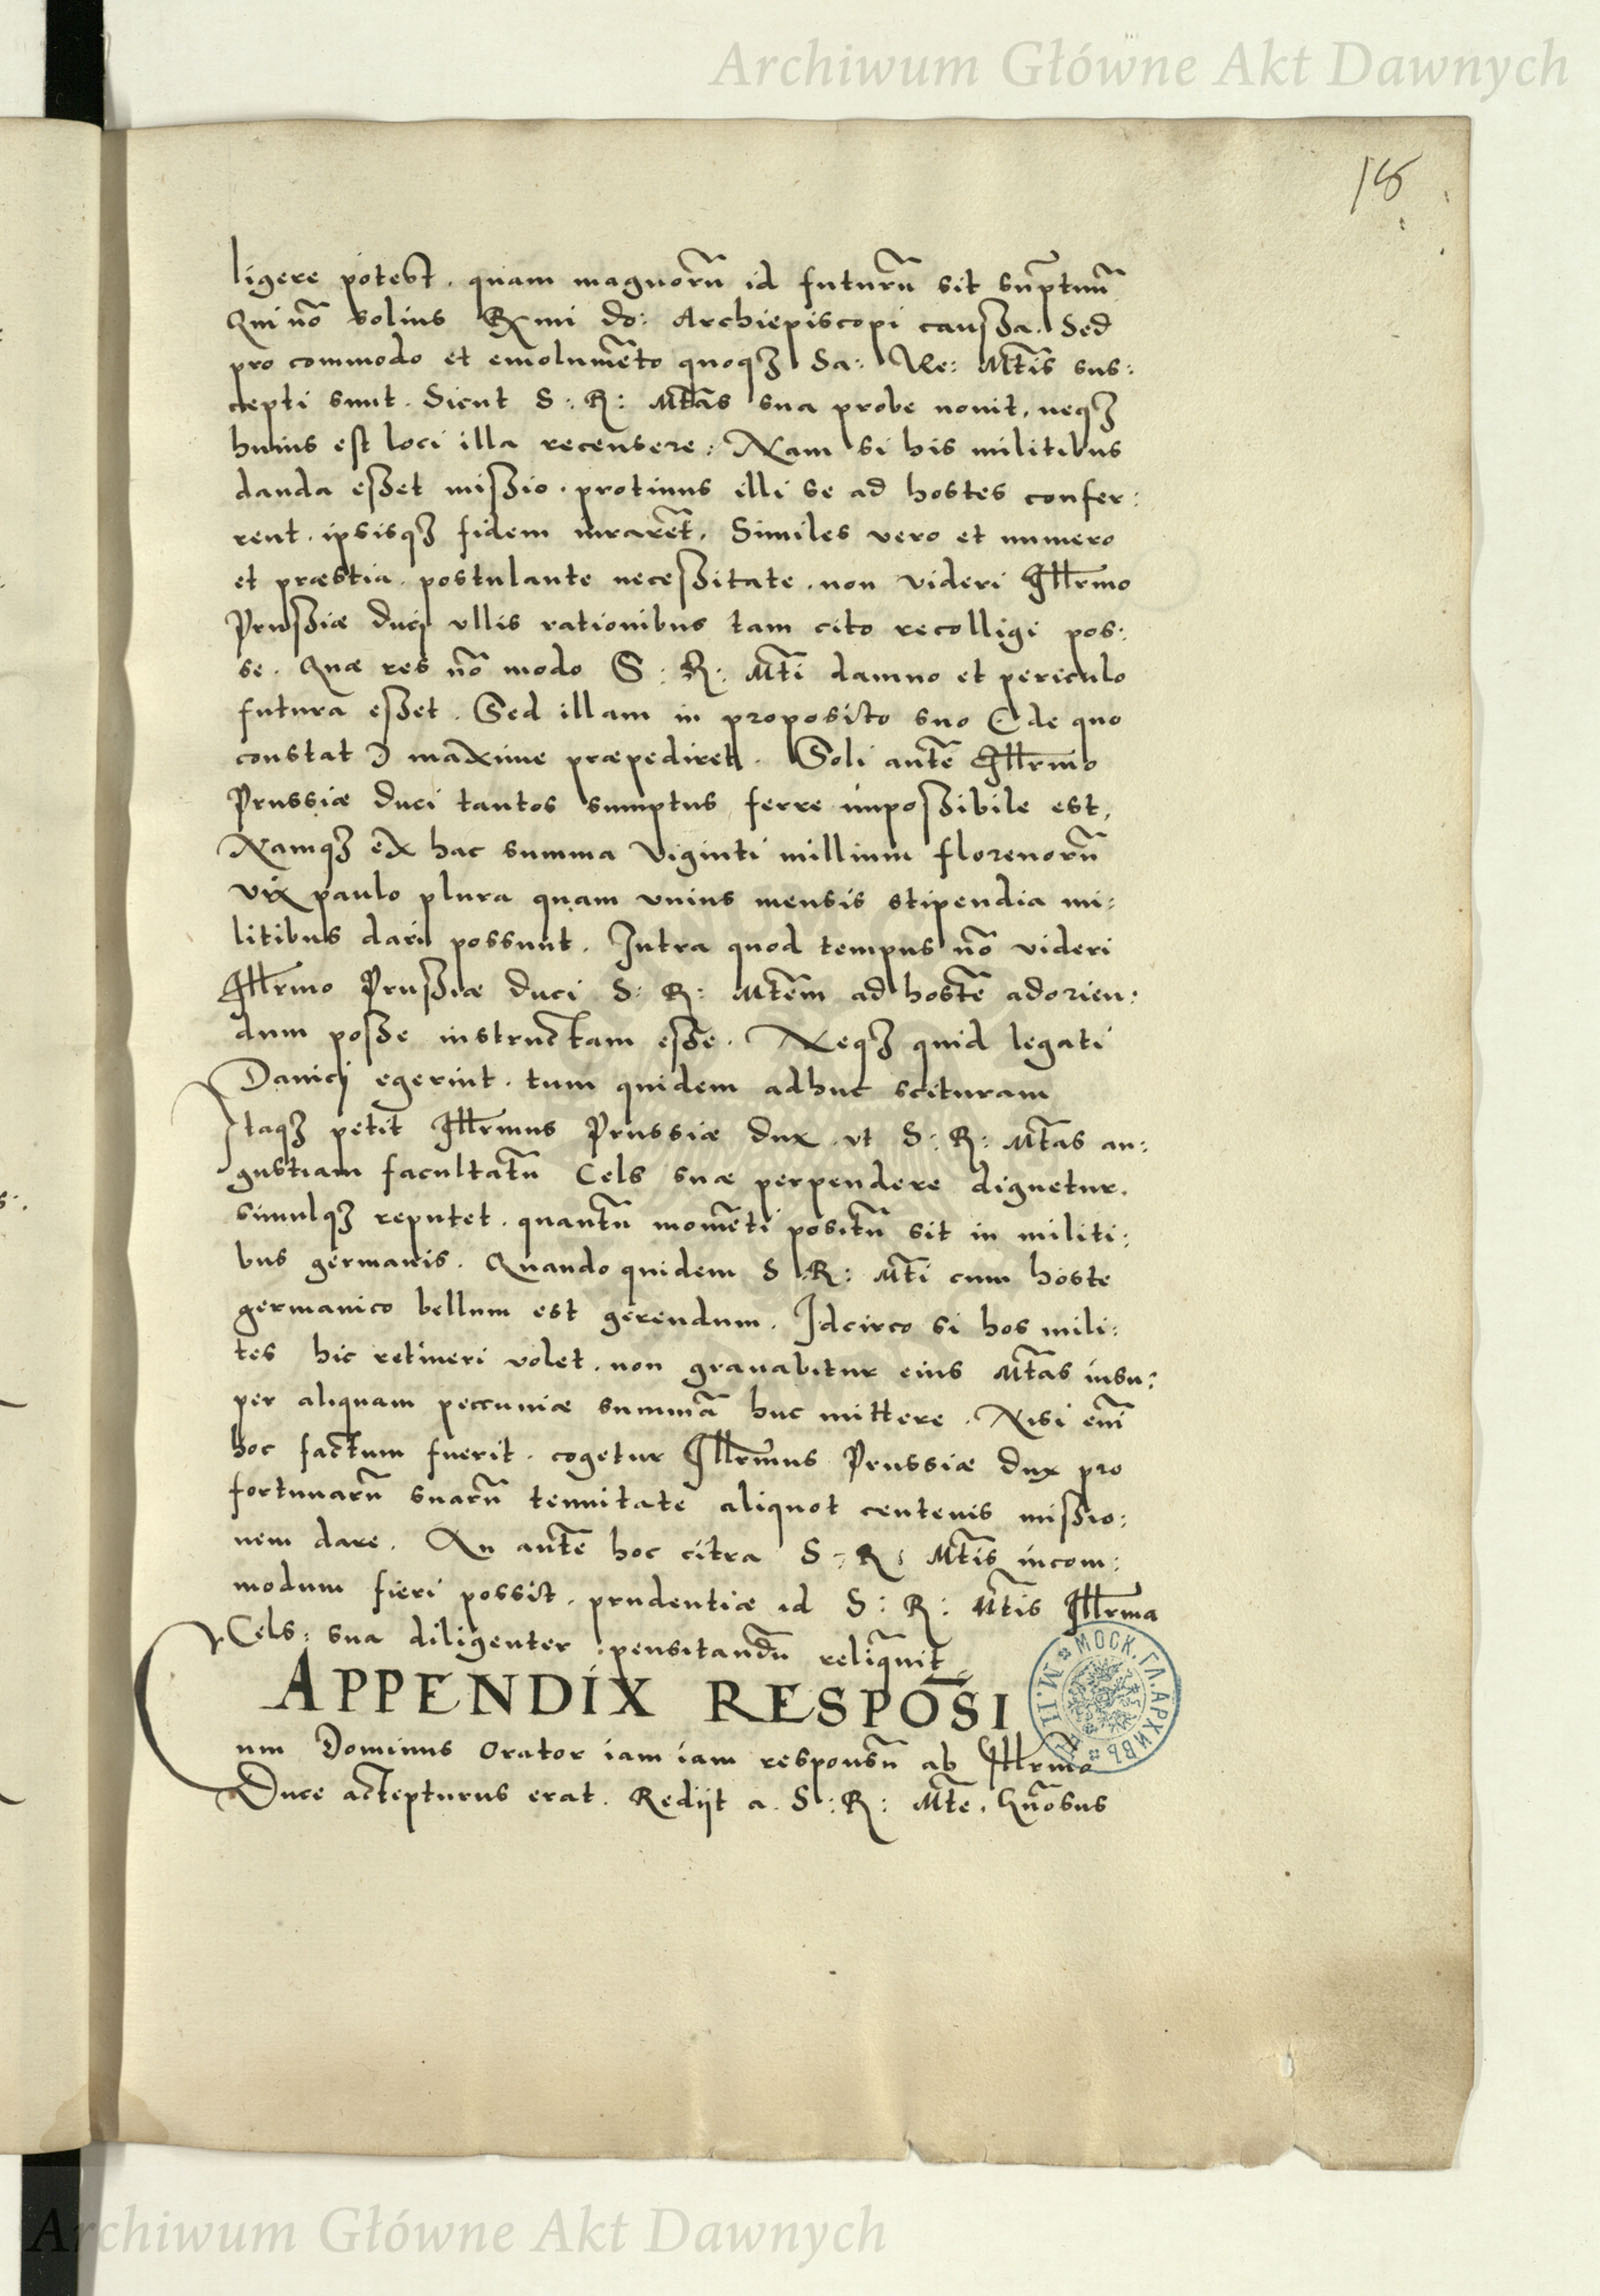 Archiwum Główne Akt Dawnych
18
ligere potest. quam magnorū id futurū sit sūptuū
Qui nō solius Rx̄mi do: Archiepiscopi caussa. Sed
pro commodo et emolumēto quoqȝ Sa: Re: Mt̄is sus:
cepti sunt. Sicut S: R: Mt̄as sua probe nouit, neqȝ
huius est loci illa recensere: Nam si his militibus
danda esset missio. protinus illi se ad hostes confer:
rent. ipsisqȝ fidem iurarēt. Similes vero et numero
et præstia. postulante necessitate. non videri Illr̄mo
Prussiæ duci vllis rationibus tam cito recolligi pos:
se. Quæ res nō modo S: R: Mt̄i damno et periculo
futura esset. Sed illam in proposito suo (de quo
constat) maxime præpediret. Soli autē Illr̄mo
Prussiæ duci tantos sumptus ferre impossibile est,
Namqȝ ex hac summa viginti millium florenorū
vix paulo plura quam vnius mensis stipendia mi:
litibus dari possunt. Intra quod tempus nō videri
Illr̄mo Prussiæ duci S: R: Mt̄em ad hostē adorien:
dum posse instructam esse. Neqȝ quid legati
Danici egerint. tum quidem adhuc scituram
Itaqȝ petit Illr̄mus Prussiæ dux. vt S: R: Mt̄as an:
gustiam facultatū Cels suæ perpendere dignetur.
simulqȝ reputet. quantū momēti positū sit in militi:
bus germanis. Quando quidem S R: Mt̄i cum hoste
germanico bellum est gerendum. Idcirco si hos mili:
tes hic retineri volet. non grauabitur eius Mt̄as insu:
per aliquam peccuniæ summā huc mittere. Nisi eni̅
hoc factum fuerit. cogetur Illr̄mus Prussiæ dux pro
fortunarū suarū tenuitate aliquot centenis missio:
nem dare. An autē hoc citra S: R: Mt̄is incom:
modum fieri possit. prudentiæ id S: R: Mt̄is Illr̄ma
Cels: sua diligenter pensitandū reliq̄uit
APPENDIX RESPŌSI
Cum Dominus Orator iam iam responsū ab Illr̄mo
Duce accepturus erat. Redijt a. S: R: Mt̄e.
МОСК. ГЛ. АРХИВЪ М. И. Д.
Archiwum Główne Akt Dawnych